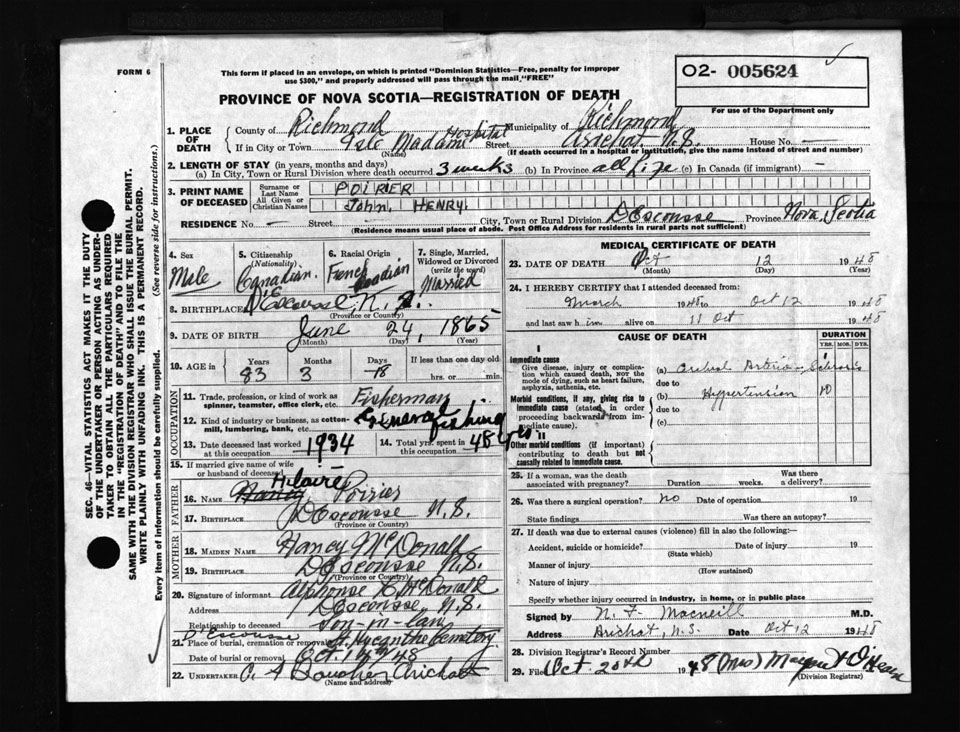 FORM 6
This form if placed in an envelope, on which is printed "Dominion Statistics—Free, penalty for improper
use $300," and properly addressed will pass through the mail "FREE"
PROVINCE OF NOVA SCOTIA—REGISTRATION OF DEATH
02- 005624
For use of the Department only
1. PLACE OF DEATH
County of Richmond Municipality of Richmond
If in City or Town Isle Madame Hospital Street Arichat N.S. House No. —
(Name) (If death occurred in a hospital or institution, give the name instead of street and number)
2. LENGTH OF STAY (in years, months and days)
(a) In City, Town or Rural Division where death occurred 3 weeks (b) In Province all life (c) In Canada (if immigrant) —
3. PRINT NAME OF DECEASED
Surname or Last Name POIRIER
All Given or Christian Names John, HENRY.
RESIDENCE No. — Street — City, Town or Rural Division DEscousse Province Nova Scotia
(Residence means usual place of abode. Post Office Address for residents in rural parts not sufficient)
4. Sex
Male
5. Citizenship
(Nationality)
Canadian.
6. Racial Origin
French
7. Single, Married, Widowed or Divorced
(write the word)
Married
8. BIRTHPLACE D'Escousse, N.S.
(Province or County)
9. DATE OF BIRTH June 24, 1865
(Month) (Day) (Year)
10. AGE in
Years Months Days If less than one day old
83 3 18 hrs. or min.
OCCUPATION
11. Trade, profession, or kind of work as
spinner, teamster, office clerk, etc. Fisherman
12. Kind of industry or business, as cotton-
mill, lumbering, bank, etc. General fishing
13. Date deceased last worked
at this occupation 1934
14. Total yrs. spent in
this occupation 48 yrs
15. If married give name of wife
or husband of deceased
FATHER
16. NAME Hilaire Poirier
17. BIRTHPLACE DEscousse N.S.
(Province or Country)
MOTHER
18. MAIDEN NAME Nancy McDonald
19. BIRTHPLACE DEscousse N.S.
(Province or Country)
20. Signature of informant Alphonse McDonald
Address DEscousse, N.S.
Relationship to deceased Son-in-law
D'Escousse
21. Place of burial, cremation or removal St. Hyacinthe Cemetery
Date of burial or removal Oct. 14th/48
22. UNDERTAKER Arichat
(Name and address)
MEDICAL CERTIFICATE OF DEATH
23. DATE OF DEATH Oct 12 1948
(Month) (Day) (Year)
24. I HEREBY CERTIFY that I attended deceased from:
March 1948 to Oct 12 1948
and last saw him alive on 11 Oct 1948
CAUSE OF DEATH
DURATION
YRS. MOS. DYS.
I
Immediate cause
Give disease, injury or complica-
tion which caused death, nor the
mode of dying, such as heart failure,
asphyxia, asthenia, etc.
(a) Arterio-Sclerosis 1
due to
Morbid conditions, if any, giving rise to
immediate cause (stated in order
proceeding backwards from im-
mediate cause).
(b) Hypertension 10
due to
(c)
II
Other morbid conditions (if important)
contributing to death but not
causally related to immediate cause.
25. If a woman, was the death
associated with pregnancy? Duration weeks. Was there a delivery?
26. Was there a surgical operation? no Date of operation 19
State findings Was there an autopsy?
27. If death was due to external causes (violence) fill in also the following:
Accident, suicide or homicide? Date of injury 19
(State which)
Manner of injury
(How sustained)
Nature of injury
Specify whether injury occurred in industry, in home, or in public place
Signed by N. F. Macneill M.D.
Address Arichat, N.S. Date Oct 12 1948
28. Division Registrar's Record Number
29. Filed Oct. 20th 1948 (Mrs) Margaret
(Division Registrar)
SEC. 46—VITAL STATISTICS ACT MAKES IT THE DUTY
OF THE UNDERTAKER OR PERSON ACTING AS UNDER-
TAKER TO OBTAIN ALL THE PARTICULARS REQUIRED
IN THE "REGISTRATION OF DEATH" AND TO FILE THE
SAME WITH THE DIVISION REGISTRAR WHO SHALL ISSUE THE BURIAL PERMIT.
WRITE PLAINLY WITH UNFADING INK. THIS IS A PERMANENT RECORD.
Every item of information should be carefully supplied. (See reverse side for instructions.)